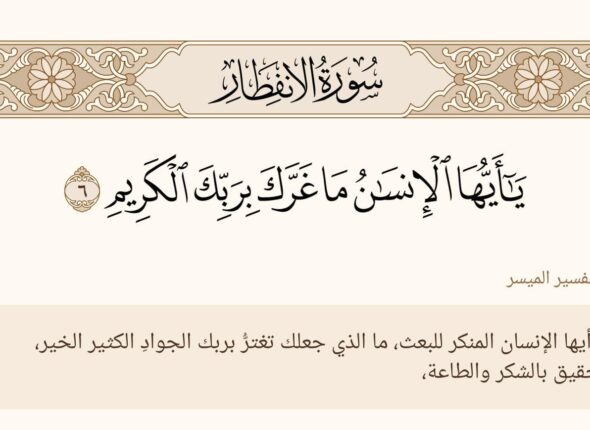 سُورَةُ الِانفِطَارِ
يَٰٓأَيُّهَا ٱلْإِنسَٰنُ مَا غَرَّكَ بِرَبِّكَ ٱلْكَرِيمِ ٦
فسير الميسر
أيها الإنسان المنكر للبعث، ما الذي جعلك تغترُّ بربك الجوادِ الكثير الخير،
حقيق بالشكر والطاعة،